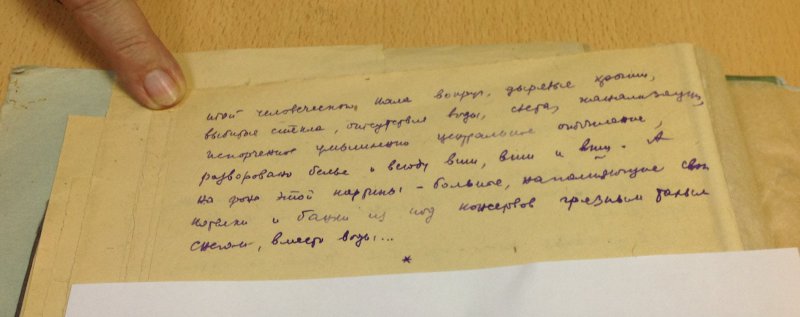 этой человеческой, кала вокруг, дырявые крыши,
выбитые стёкла, отсутствие воды, света, канализации,
испорченное умышленно центральное отопление,
разворовано белье и всюду вши, вши и вши. А
на фоне этой картины – больные, наполняющие свои
котелки и банки из под консервов грязным талым
снегом, вместо воды...
*